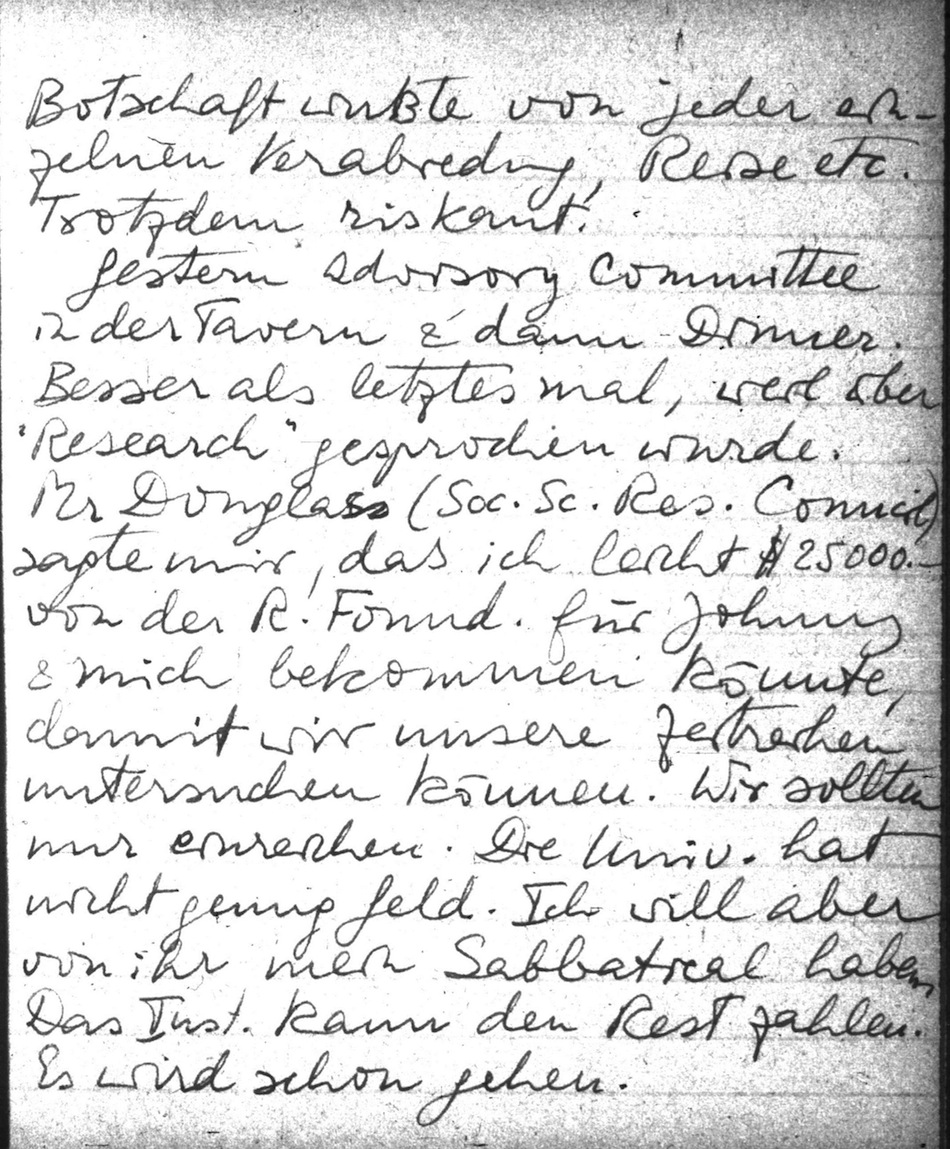 Botschaft wußte von jeder ein-
zelnen Verabredung, Reise etc.
Trotzdem riskant.
Gestern Advisory Committee
in der Tavern & dann Dinner.
Besser als letztes mal, weil über
"Research" gesprochen wurde.
Mr Douglass (Soc. Sc. Res. Council)
sagte mir, das ich leicht $ 25000.–
von der R. Found. für Johnny
& mich bekommen könnte,
damit wir unsere Zeitreihen
untersuchen können. Wir sollten
nur einreichen. Die Univ. hat
nicht genug Geld. Ich will aber
von ihr mein Sabbatical haben,
Das Inst. kann den Rest zahlen.
Es wird schon gehen.